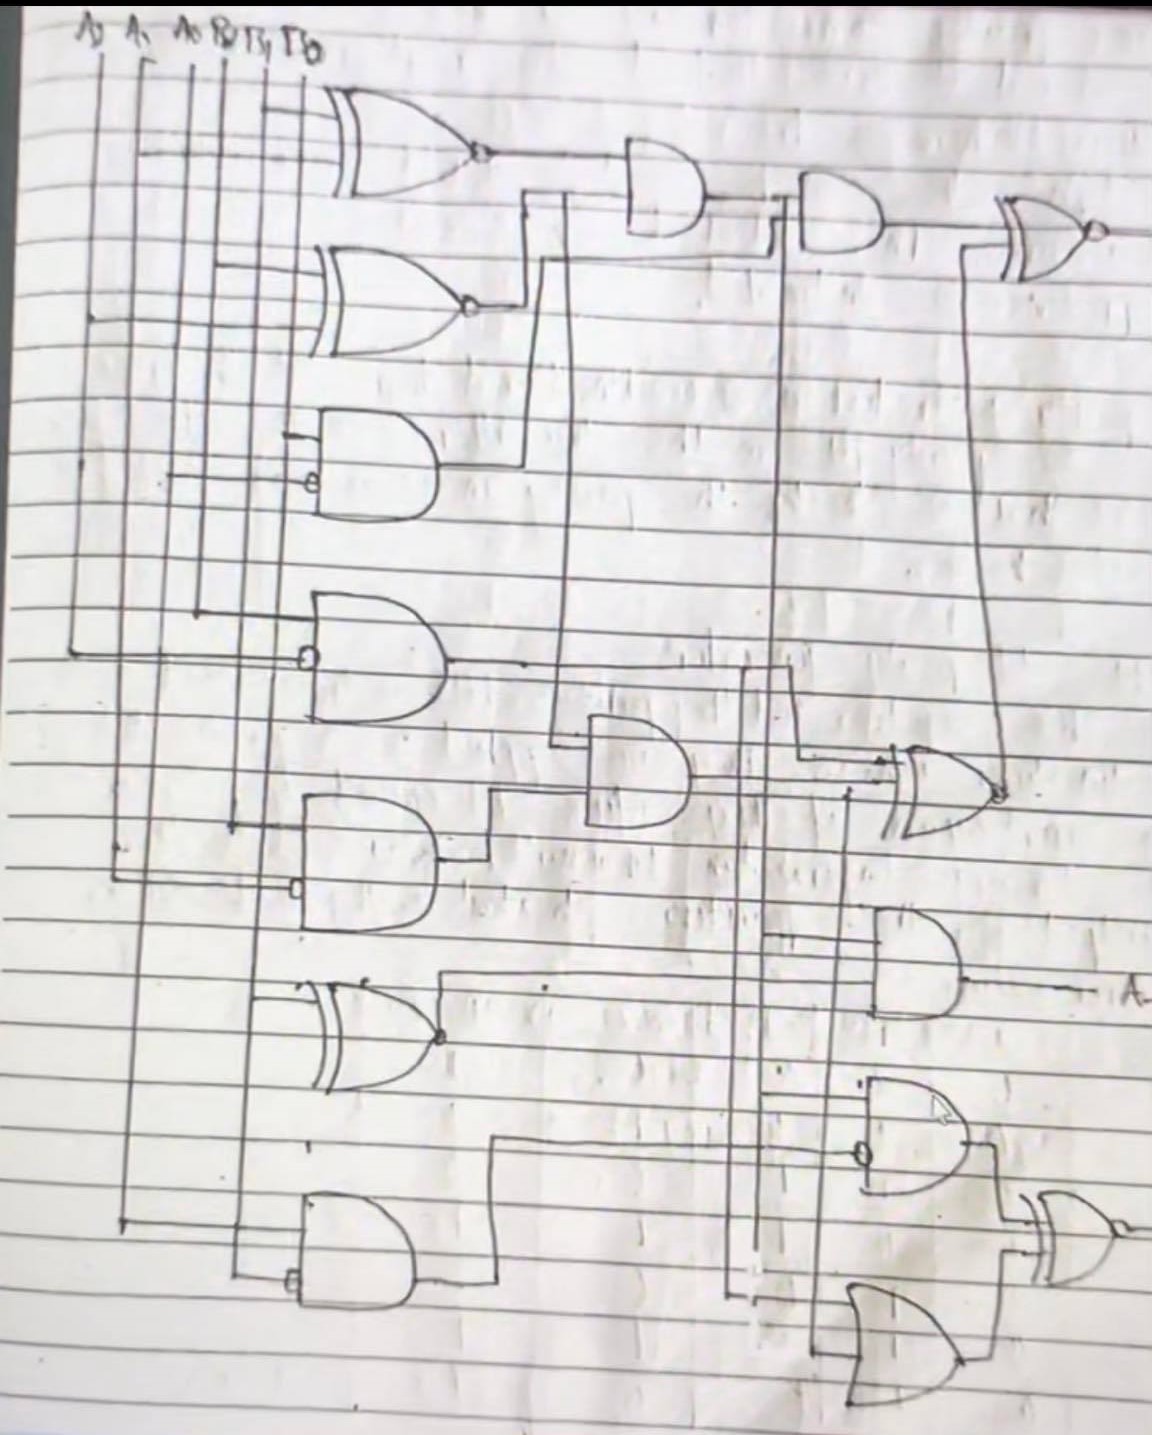 A₂ A₁ A₀ B₂ B₁ B₀
A